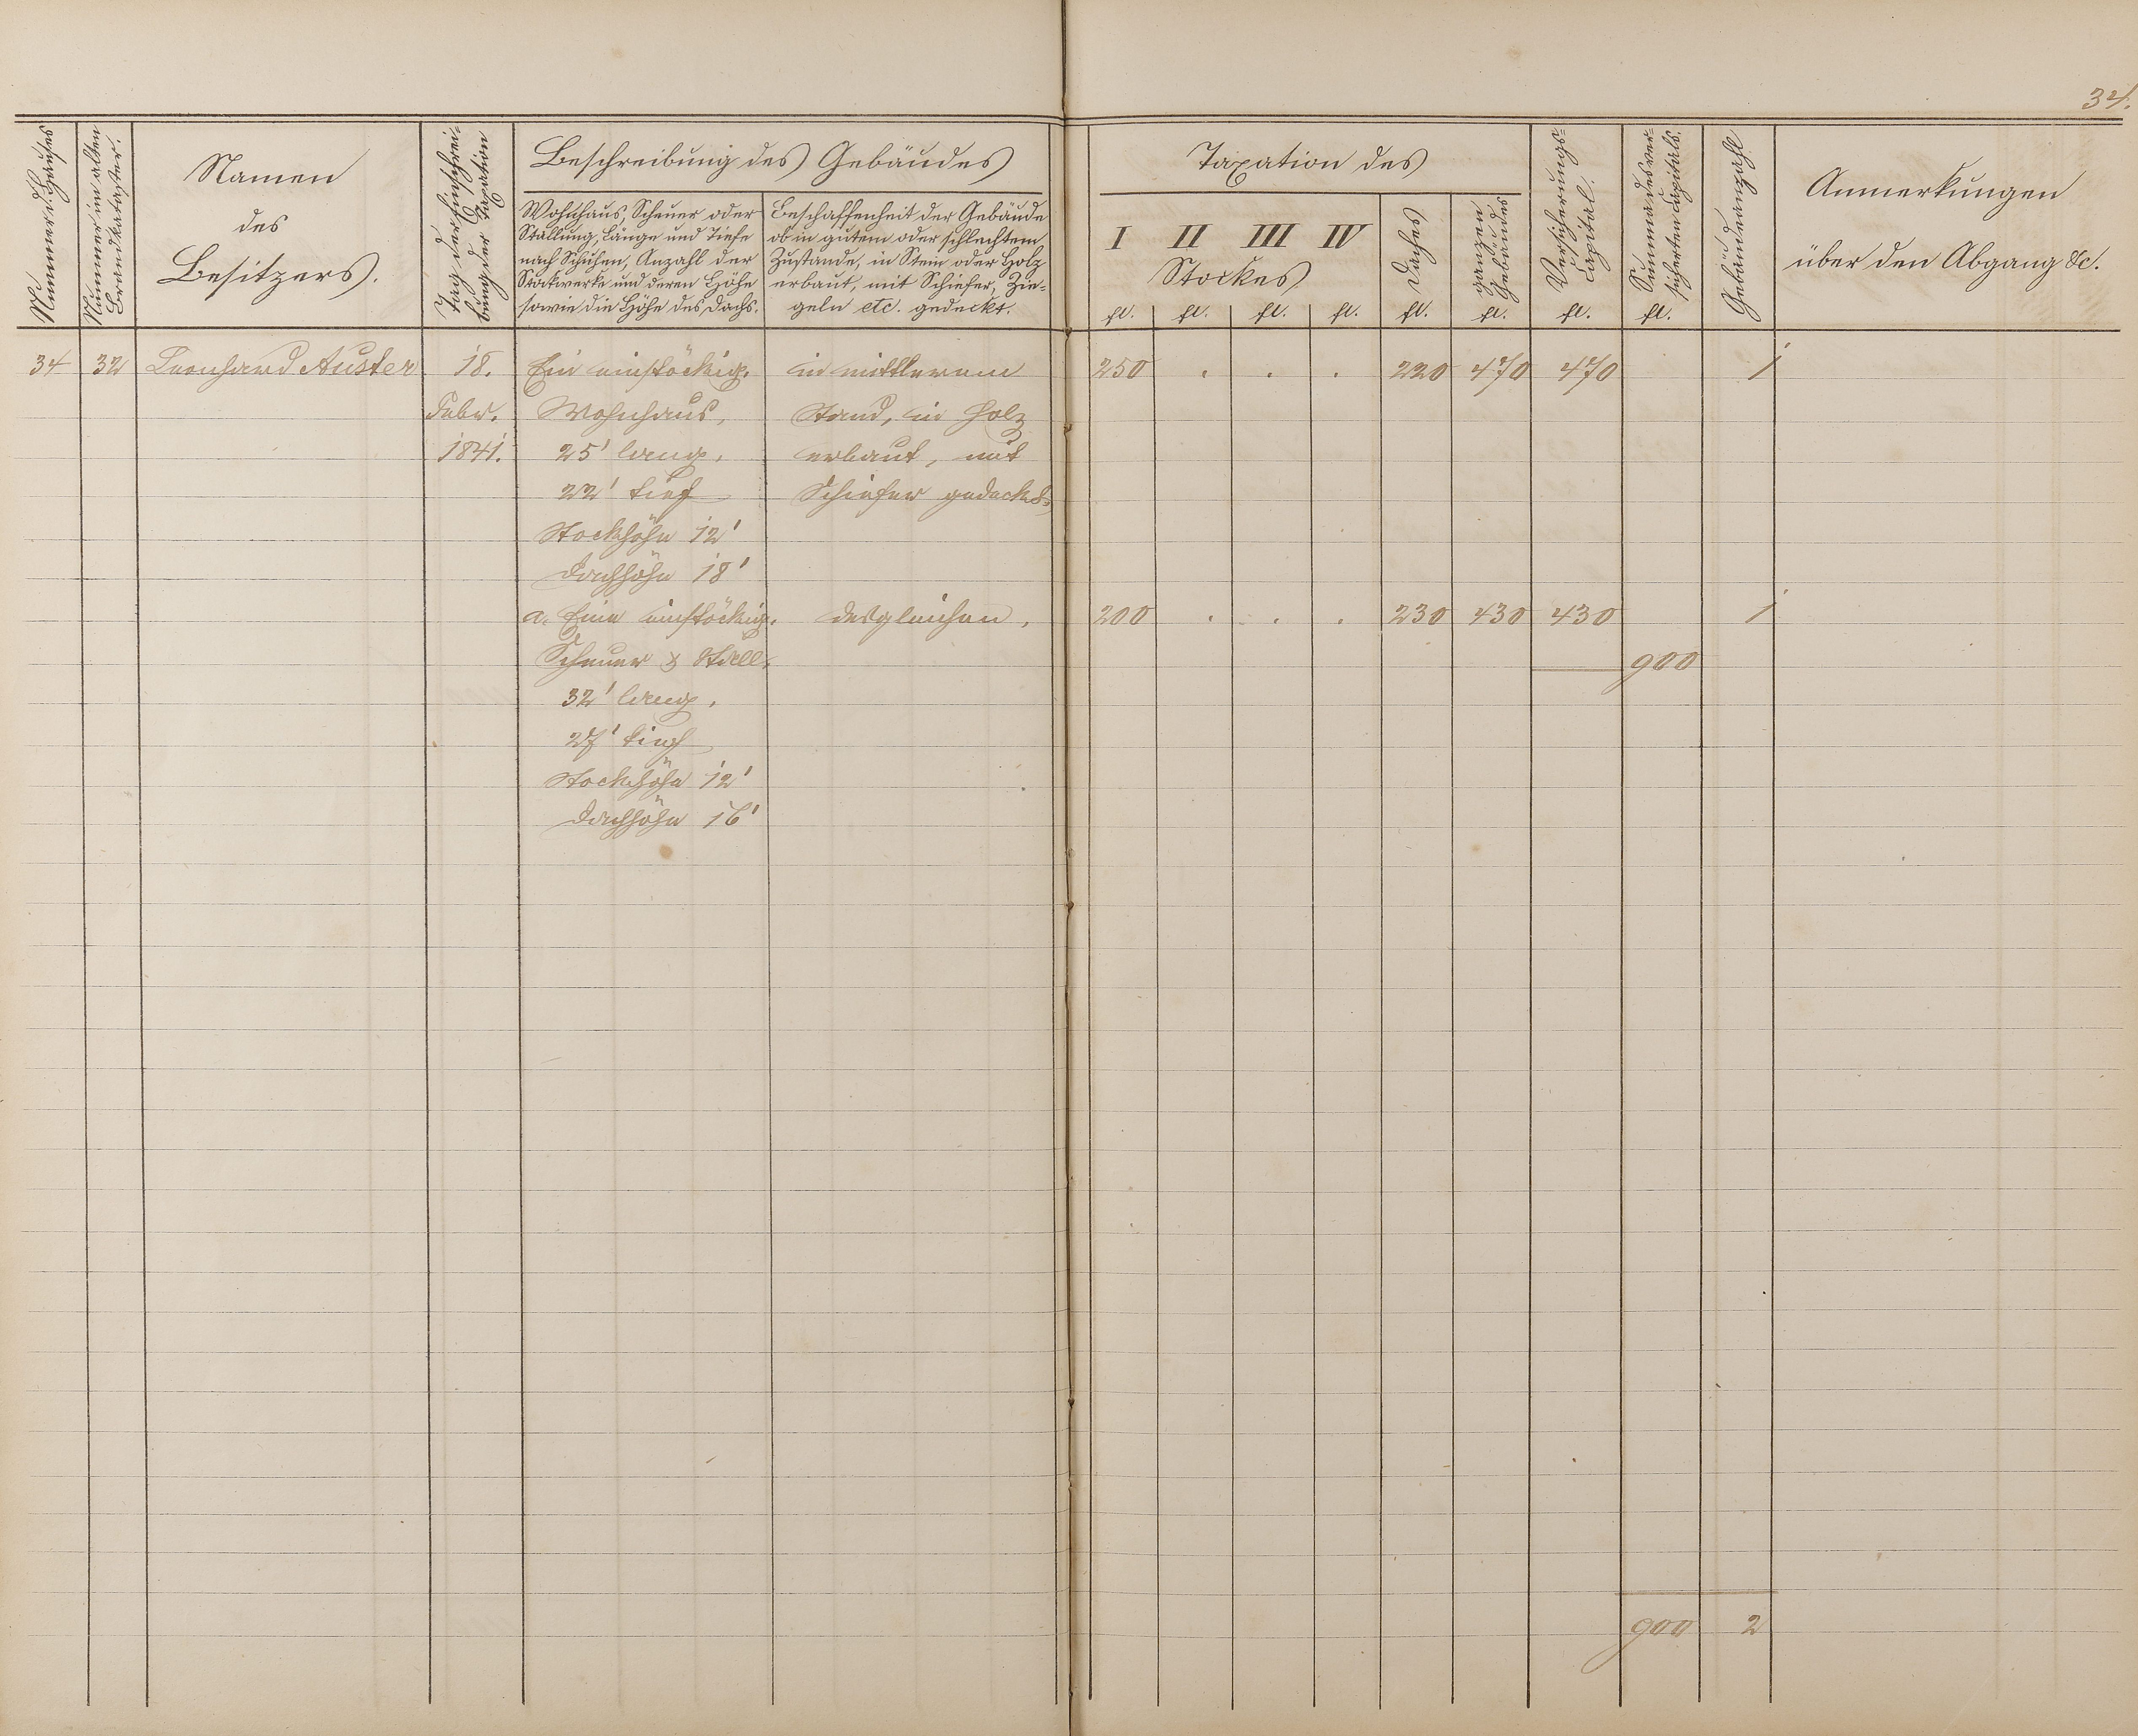 34.
Nummer d. Hauses
Nummer im alten
Brandkataster.
Namen
des
Besitzers.
Tag der Einschrei-
bung der Taxation
Beschreibung des Gebäudes
Wohnhaus, Scheuer oder
Stallung, Länge und Tiefe
nach Schuhen, Anzahl der
Stockwerke und deren Höhe
sowie die Höhe des Dachs.
Beschaffenheit der Gebäude
ob in gutem oder schlechtem
Zustande, in Stein oder Holz
erbaut, mit Schiefer, Zie-
geln etc. gedeckt.
Taxation des
I II III IV
Stockes
fl. fl. fl. fl.
Daches
fl.
ganzen
Gebäudes
fl.
Versicherungs-
Capital.
fl.
Summa des ver-
sicherten Capitals.
fl.
Gebäudeanzahl
Anmerkungen
über den Abgang &c.
34 32 Leonhard Auster 18. Ein einstöckig. in mittlerem 250 . . . 220 470 470 1
Febr. Wohnhaus, Stand, in Holz
1841. 25' lang, erbaut, mit
22' tief Schiefer gedeckt
Stockhöhe 12'
Dachhöhe 18'
a. Eine einstöckig. desgleichen. 200 . . . 230 430 430 1
Scheuer & Stall. 900
32' lang,
27' tief
Stockhöhe 12'
Dachhöhe 16'
900 2